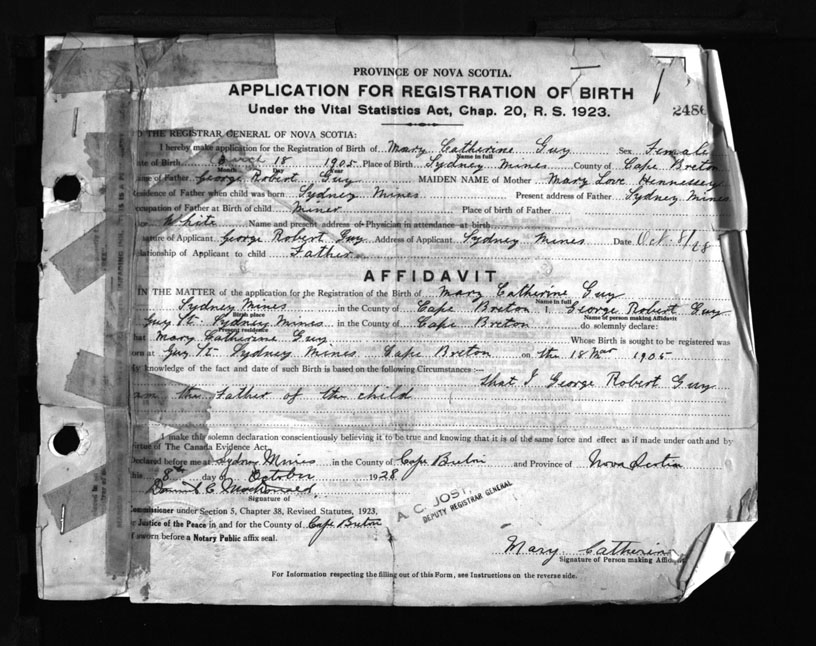 PROVINCE OF NOVA SCOTIA.
APPLICATION FOR REGISTRATION OF BIRTH
Under the Vital Statistics Act, Chap. 20, R. S. 1923.
2486
O THE REGISTRAR GENERAL OF NOVA SCOTIA:
I hereby make application for the Registration of Birth of Mary Catherine Guy Sex Female
Name in full
ate of Birth March 18 1905 Place of Birth Sydney Mines County of Cape Breton
Month Day Year
ame of Father George Robert Guy MAIDEN NAME of Mother Mary Love Hennessey
esidence of Father when child was born Sydney Mines Present address of Father Sydney Mines
ccupation of Father at Birth of child Miner Place of birth of Father
White Name and present address of Physician in attendance at birth
nature of Applicant George Robert Guy Address of Applicant Sydney Mines Date Oct. 8/28
elationship of Applicant to child Father
AFFIDAVIT
IN THE MATTER of the application for the Registration of the Birth of Mary Catherine Guy
Name in full
Sydney Mines in the County of Cape Breton I, George Robert Guy
Birth place Name of person making Affidavit
Guy St. Sydney Mines in the County of Cape Breton do solemnly declare:
Present residence
hat Mary Catherine Guy Whose Birth is sought to be registered was
orn at Guy St. Sydney Mines Cape Breton on the 18 Mar 1905
y knowledge of the fact and date of such Birth is based on the following Circumstances :—
that I George Robert Guy
am the Father of the child
I make this solemn declaration conscientiously believing it to be true and knowing that it is of the same force and effect as if made under oath and by
irtue of The Canada Evidence Act.
eclared before me at Sydney Mines in the County of Cape Breton and Province of Nova Scotia
this 8th day of October 1928
C. MacDonald
Signature of
A. C. JOST,
DEPUTY REGISTRAR GENERAL
ommissioner under Section 5, Chapter 38, Revised Statutes, 1923,
r Justice of the Peace in and for the County of Cape Breton
f sworn before a Notary Public affix seal.
Mary Catherin
Signature of Person making Affid
For Information respecting the filling out of this Form, see Instructions on the reverse side.